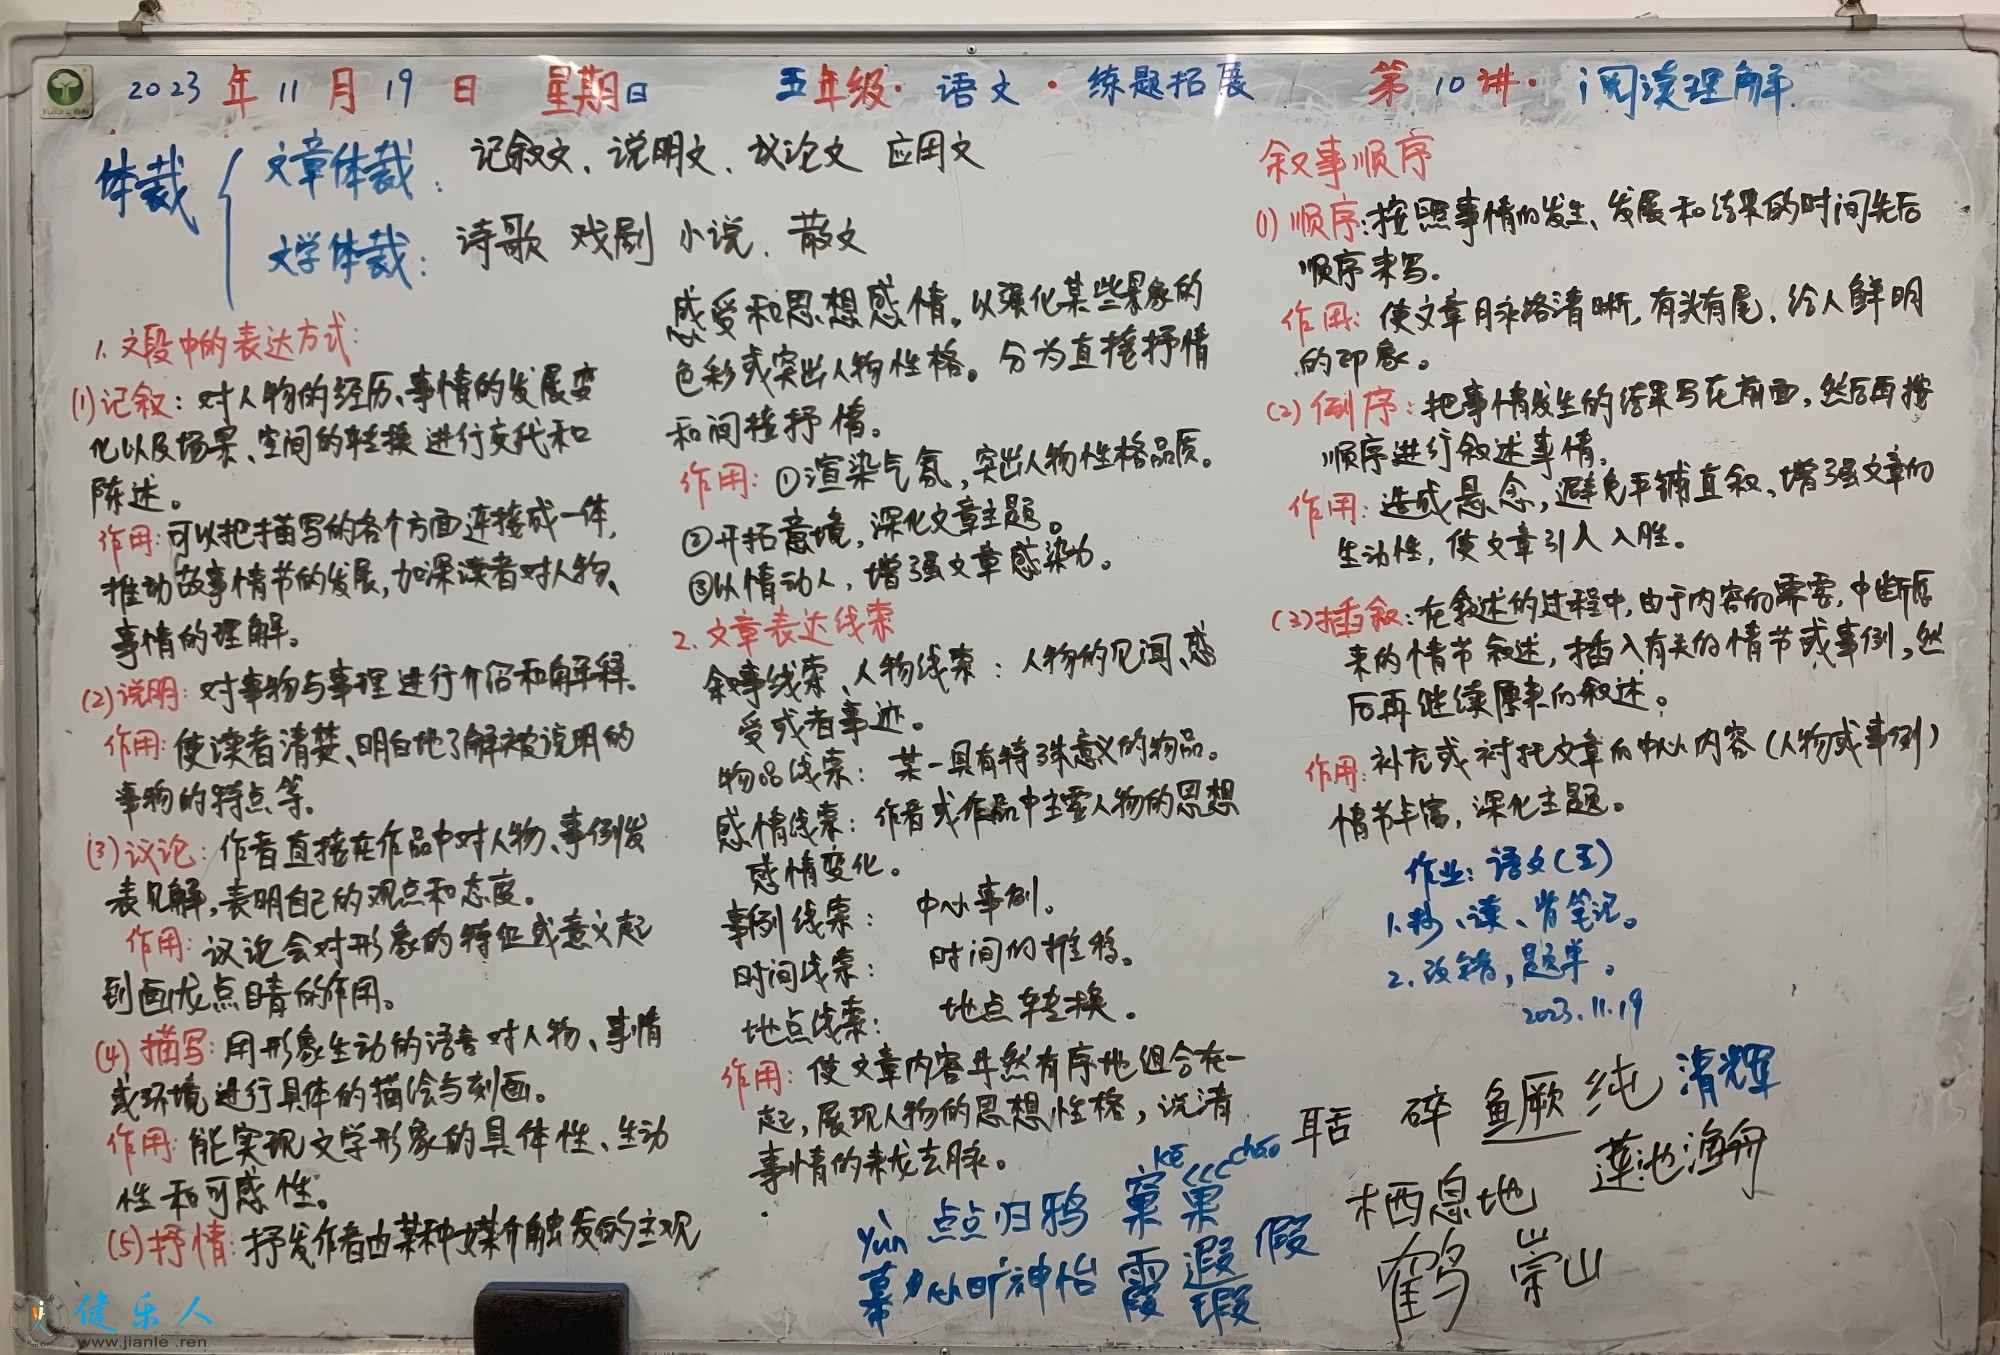 2023年11月19日 星期日 五年级·语文·练题拓展 第10讲·阅读理解
体裁
文章体裁: 记叙文、说明文、议论文 应用文
文学体裁: 诗歌 戏剧 小说、散文
1.文段中的表达方式:
(1)记叙: 对人物的经历、事情的发展变
化以及场景、空间的转换进行交代和
陈述。
作用:可以把描写的各个方面连接成一体,
推动故事情节的发展,加深读者对人物、
事情的理解。
(2)说明: 对事物与事理进行介绍和解释。
作用: 使读者清楚、明白地了解被说明的
事物的特点等。
(3)议论: 作者直接在作品中对人物、事例发
表见解,表明自己的观点和态度。
作用: 议论会对形象的特征或意义起
到画龙点睛的作用。
(4)描写: 用形象生动的语言对人物、事情
或环境进行具体的描绘与刻画。
作用: 能实现文学形象的具体性、生动
性和可感性。
(5)抒情: 抒发作者由某种媒介触发的主观
感受和思想感情。以强化某些景象的
色彩或突出人物性格。分为直接抒情
和间接抒情。
作用: ①渲染气氛,突出人物性格品质。
②开拓意境,深化文章主题。
③以情动人,增强文章感染力。
2.文章表达线索
叙事线索、人物线索: 人物的见闻、感
受或者事迹。
物品线索: 某一具有特殊意义的物品。
感情线索: 作者或作品中主要人物的思想
感情变化。
事例线索: 中心事例。
时间线索: 时间的推移。
地点线索: 地点转换。
作用: 使文章内容井然有序地组合在一
起,展现人物的思想性格,说清
事情的来龙去脉。
叙事顺序
(1)顺序:按照事情的发生、发展和结果的时间先后
顺序来写。
作用: 使文章脉络清晰,有头有尾,给人鲜明
的印象。
(2)倒序: 把事情发生的结果写在前面,然后再按
顺序进行叙述事情。
作用: 造成悬念,避免平铺直叙,增强文章的
生动性,使文章引人入胜。
(3)插叙: 在叙述的过程中,由于内容的需要,中断原
来的情节叙述,插入有关的情节或事例,然
后再继续原来的叙述。
作用: 补充或衬托文章的中心内容(人物或事例)
情节丰富,深化主题。
作业: 语文(五)
1.抄、读、背笔记。
2.改错,题单。
2023.11.19
聒 碎 鳜 纯 清辉
栖息地 莲池渔舟
鹤 崇山
kē cháo
yùn 点点归鸦 窠 巢
心旷神怡 霞 遐 假
瑕
健乐人
www.jianle.ren